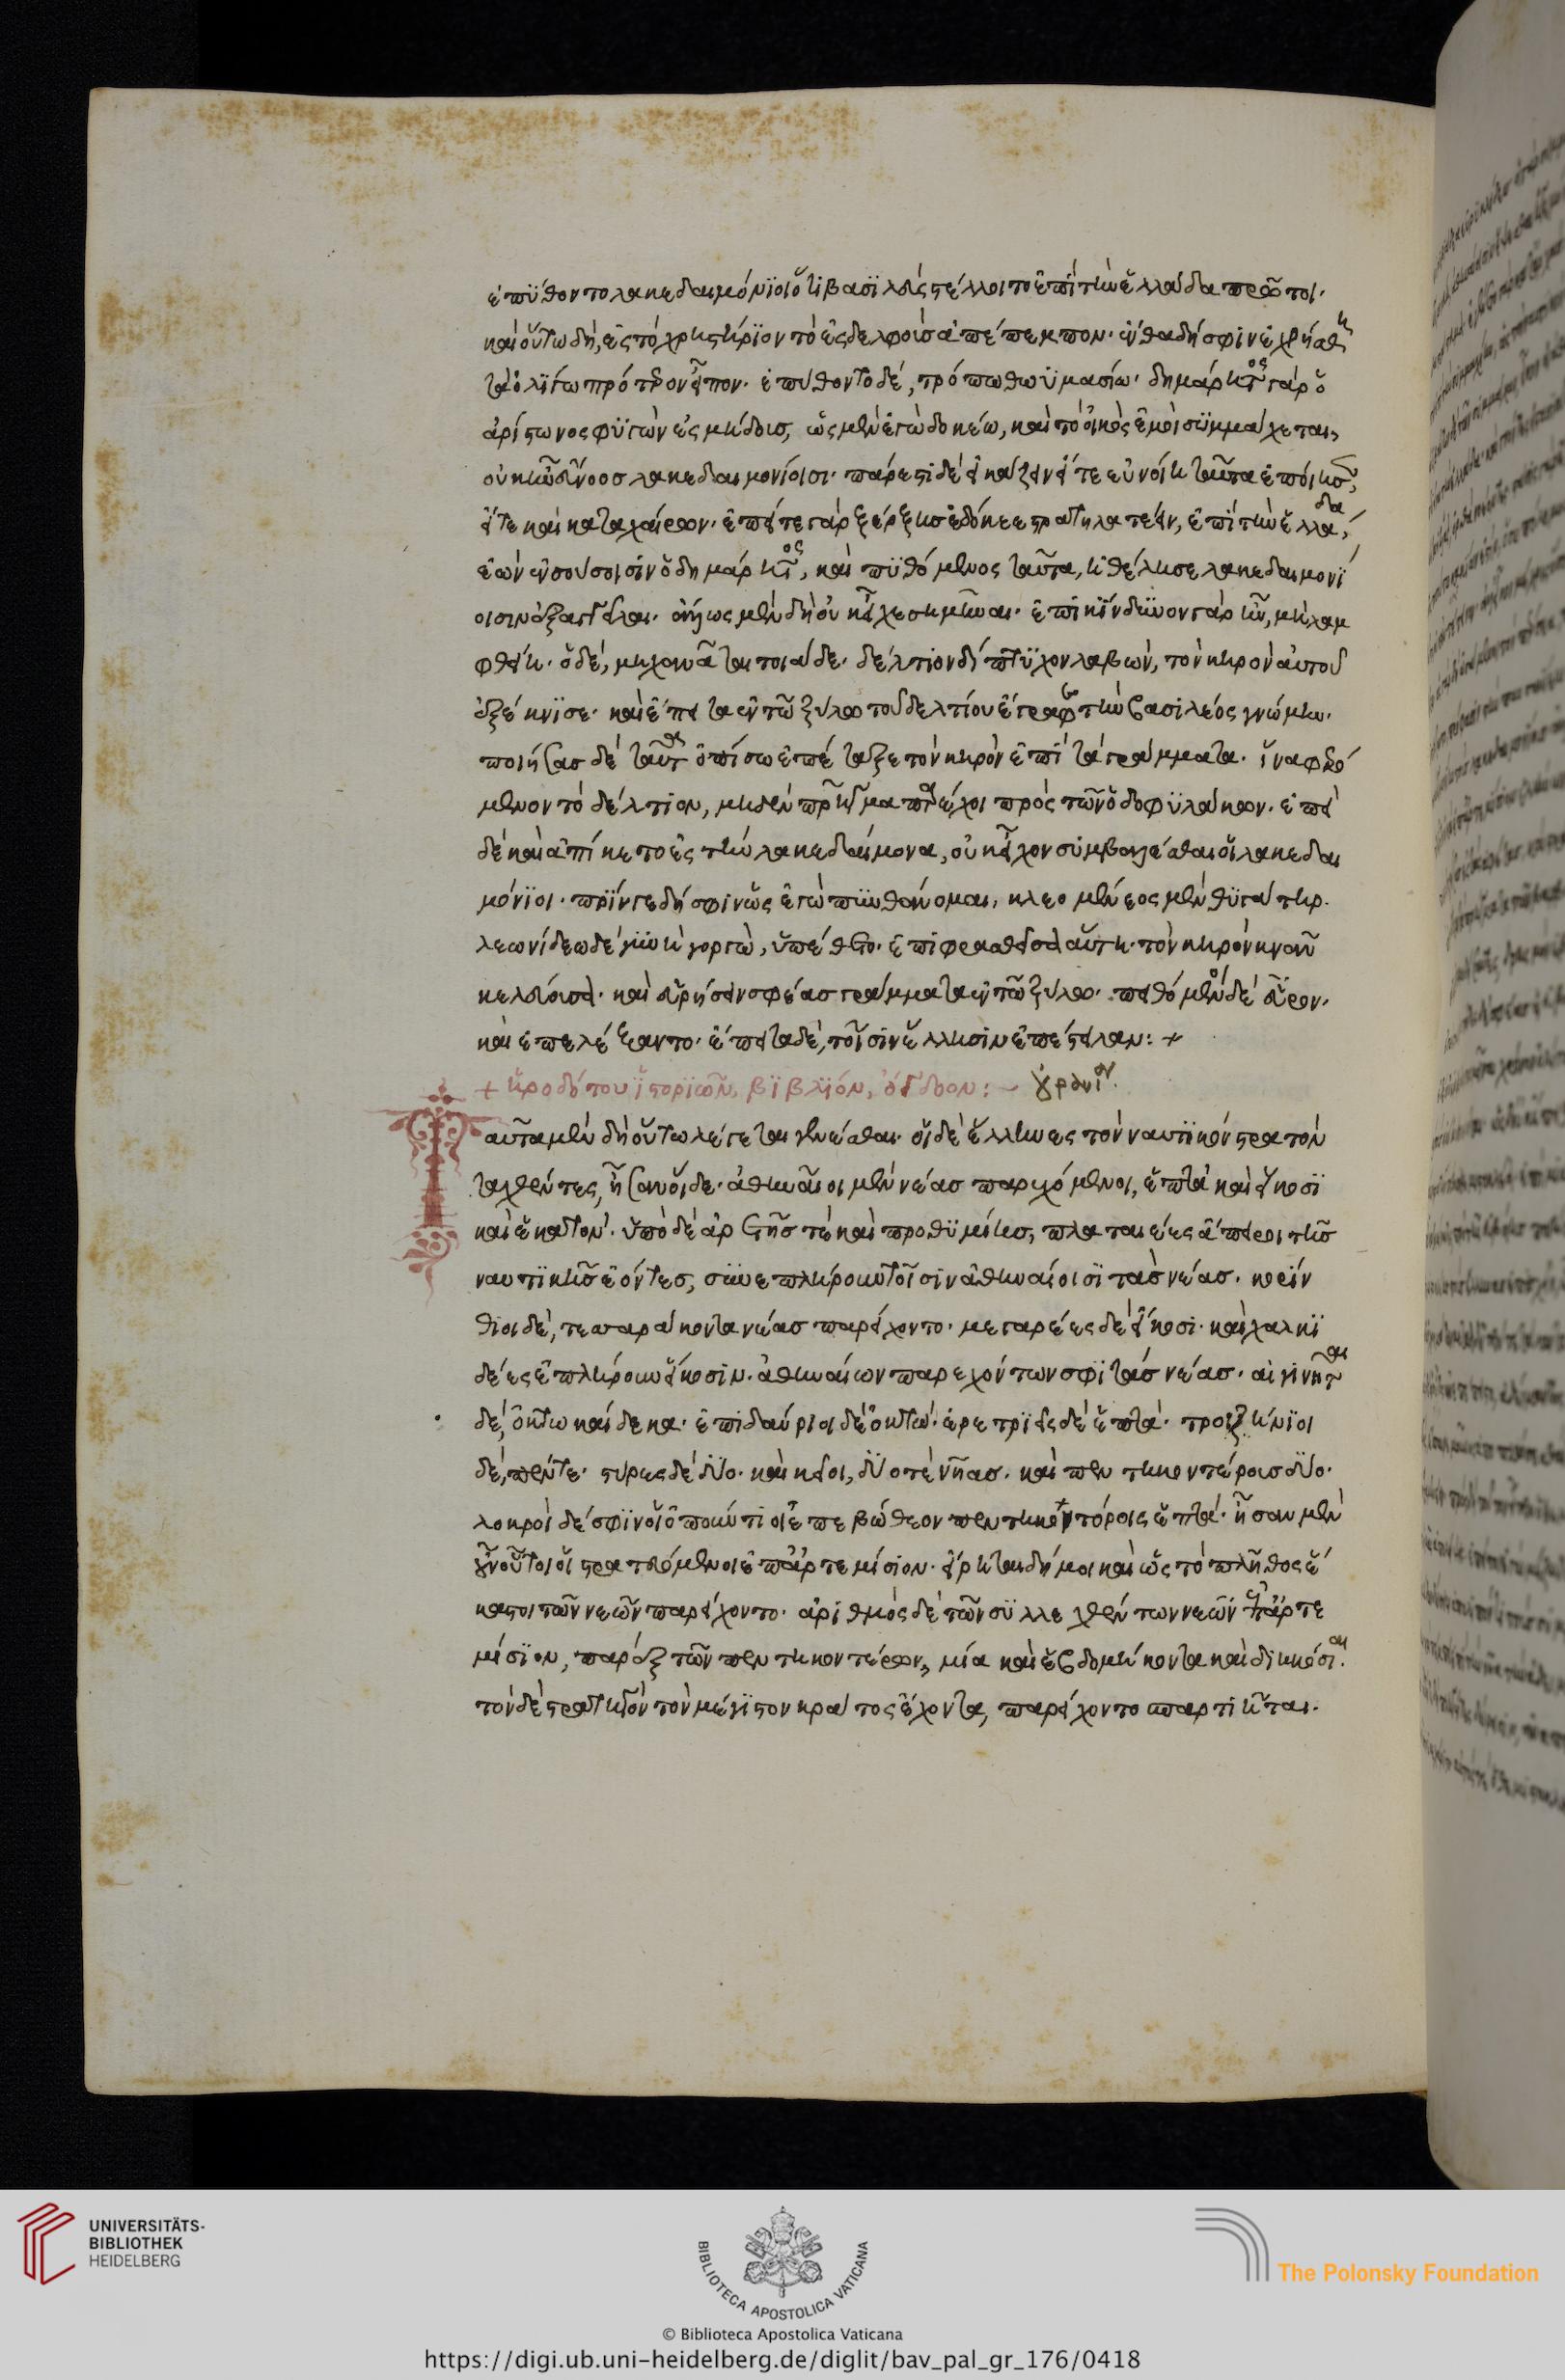 ἐπύθοντο λακεδαιμόνιοι ὅτι βασιλεὺς στέλλοιτο ἐπὶ τὴν ἑλλάδα πρῶτοι.
καὶ οὕτω δὴ, ἐς τὸ χρηστήριον τὸ ἐς δελφοὺς ἀπέπεμπον. ἔνθα δή σφιν ἐχρήσθη
τὰ ὀλίγω πρότερον εἶπον. ἐπύθοντο δέ, τρόπω θωυμασίω. δημάρητος γὰρ ὁ
ἀρίστωνος φυγὼν ἐς μήδους, ὡς μὲν ἐγὼ δοκέω, καὶ τὸ οἰκὸς ἐμοὶ συμμάχεται,
οὐκ ἦν εὔνοος λακεδαιμονίοισι. πάρεστι δὲ εἰκάζειν εἴτε εὐνοίη ταῦτα ἐποίησε,
εἴτε καὶ καταχαίρων. ἐπείτε γὰρ ξέρξη ἐδόκεε στρατηλατέειν, ἐπὶ τὴν ἑλλάδα,
ἐὼν ἐν σούσοισιν ὁ δημάρητος, καὶ πυθόμενος ταῦτα, ἠθέλησε λακεδαιμονί
οισιν ἐξαγγεῖλαι. ἄλλως μὲν δὴ οὐκ εἶχε σημῆναι. ἐπικίνδυνον γὰρ ἦν, μὴ λαμ
φθείη. ὁ δέ, μηχανᾶται τοιάδε. δελτίον δίπτυχον λαβὼν, τὸν κηρὸν αὐτοῦ
ἐξέκνισε. καὶ ἔπειτα ἐν τῷ ξύλω τοῦ δελτίου ἔγραψε τὴν βασιλέος γνώμην.
ποιήσας δὲ ταῦτα ὀπίσω ἐπέταξε τὸν κηρὸν ἐπὶ τὰ γράμματα. ἵνα φερό
μενον τὸ δέλτιον, μηδὲν πρῆγμα παρέχοι πρὸς τῶν ὁδοφυλάκων. ἐπεὶ
δὲ καὶ ἀπίκετο ἐς τὴν λακεδαίμονα, οὐκ εἶχον συμβαλέσθαι οἱ λακεδαι
μόνιοι. πρίν γε δή σφιν ὡς ἐγὼ πυνθάνομαι, κλεομένεος μὲν θυγάτηρ.
λεωνίδεω δὲ γυνὴ γοργὼ, ὑπέθετο. ἐπιφρασθεῖσα αὐτή. τὸν κηρὸν κνᾶν
κελεύουσα. καὶ εὑρήσειν σφέας γράμματα ἐν τῷ ξύλω. πειθόμενοι δὲ εὗρον.
καὶ ἐπελέξαντο. ἔπειτα δὲ, τοῖσιν ἕλλησιν ἐπέστειλαν: +
+ ἡροδότου ἱστοριῶν, βιβλίον, ὄγδοον: ~ οὐρανία.
Ταῦτα μὲν δὴ οὕτω λέγεται γενέσθαι. οἱ δὲ ἕλληνες τὸν ναυτικὸν στρατὸν
ταχθέντες, ἦσαν οἵδε. ἀθηναῖοι μὲν νέας παρεχόμενοι, ἑπτὰ καὶ εἴκοσι
καὶ ἑκατόν. ὑπὸ δὲ ἀρετῆς τε καὶ προθυμίης, πλαταιέες ἄπειροι τῆς
ναυτικῆς ἐόντες, συνεπλήρουν τοῖσιν ἀθηναίοισι τὰς νέας. κορίν
θιοι δὲ, τεσσαράκοντα νέας παρείχοντο. μεγαρέες δὲ εἴκοσι. καὶ χαλκι
δέες ἐπλήρουν εἴκοσιν. ἀθηναίων παρεχόντων σφι τὰς νέας. αἰγινῆται
δὲ, ὀκτωκαίδεκα. ἐπιδαύριοι δὲ ὀκτώ. ἐρετριεῖς δὲ ἑπτά. τροιζήνιοι
δὲ, πέντε. στυρεες δὲ δύο. καὶ κεῖοι, δύο τὲ νῆας. καὶ πεντηκοντέρους δύο.
λοκροὶ δέ σφιν οἱ ὀπούντιοι ἐπεβώθεον πεντηκοντόρους ἑπτά. ἦσαν μὲν
ὦν οὗτοι οἱ στρατευόμενοι ἐπ' ἀρτεμίσιον. εἴρηται δή μοι καὶ ὡς τὸ πλῆθος ἕ
καστοι τῶν νεῶν παρείχοντο. ἀριθμὸς δὲ τῶν συλλεχθέντων νεῶν ἐπ' ἀρτε
μίσιον, πάρεξ τῶν πεντηκοντέρων, μία καὶ ἑβδομήκοντα καὶ διηκόσιαι.
τὸν δὲ στρατηγὸν τὸν μέγιστον κράτος ἔχοντα, παρείχοντο σπαρτιῆται.
UNIVERSITÄTS-
BIBLIOTHEK
HEIDELBERG
BIBLIOTECA APOSTOLICA VATICANA
© Biblioteca Apostolica Vaticana
The Polonsky Foundation
https://digi.ub.uni-heidelberg.de/diglit/bav_pal_gr_176/0418